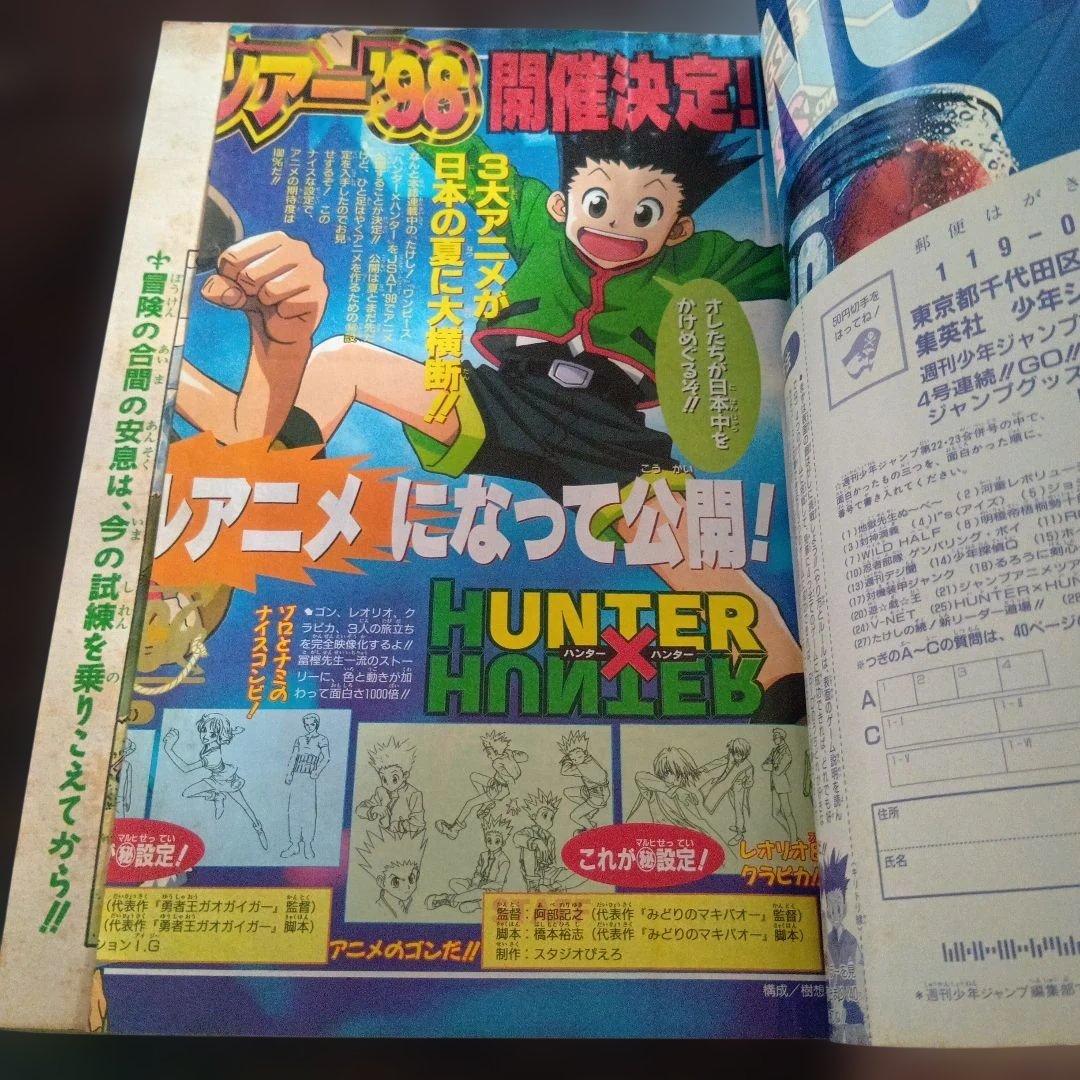 ツアー'98 開催決定!
3大アニメが
日本の夏に大横断!!
なんと本誌連載中の、『たけし!』『ワンピース』
『ハンター×ハンター』をJSAT'98でアニメ
公開することが決定!! 公開は夏とまだ先だ
けど、ひと足はやくアニメを作るための㊙設
定を入手したのでお見
せするぞ! この
ナイスな設定で、
アニメの期待度は
100%だ!!
オレたちが日本中を
かけめぐるぞ!!
✢冒険の合間の安息は、今の試練を乗りこえてから!!
アニメになって公開!
ゾロとナミの
ナイスコンビ!
ゴン、レオリオ、ク
ラピカ、3人の旅立ち
を完全映像化するよ!!
冨樫先生一流のストー
リーに、色と動きが加
わって面白さ1000倍!!
HUNTER
ハンター×ハンター
HUNTER
が㊙設定!
これが㊙設定!
レオリオ
クラピカ
(代表作『勇者王ガオガイガー』監督)
(代表作『勇者王ガオガイガー』脚本)
ションI.G
アニメのゴンだ!!
監督:阿部記之(代表作『みどりのマキバオー』監督)
脚本:橋本裕志(代表作『みどりのマキバオー』脚本)
制作:スタジオぴえろ
構成/樹想
郵便はがき
50円切手を
はってね!
119-0
東京都千代田区
集英社 少年ジ
週刊少年ジャンプ
4号連続!!GO!!
ジャンプグッズ
☆週刊少年ジャンプ第22・23合併号の中で、
面白かったもの三つを、面白かった順に、
番号で書き入れてください。
(1)地獄先生ぬ〜べ〜 (2)河童レボリュー
(3)封神演義 (4)I"s(アイズ) (5)ジョジ
(7)WILD HALF (8)明稜帝梧桐勢十
(10)忍者部隊 ゲンバリング・ボイ (11)
(13)週刊デジ聞 (14)少年探偵Q (15)ホ
(17)対機装甲ジャング (18)るろうに剣心
(20)遊☆戯☆王 (21)ジャンプアニメツア
(24)V-NET (25)HUNTER×HUN
(27)たけしの続!新リーダー道場!!
※つぎのA〜Cの質問は、40ページ
A
1 2 3 4
C
I-I I-II
I-V I-VI
住所
氏名
(キリトリ線)
*週刊少年ジャンプ編集部